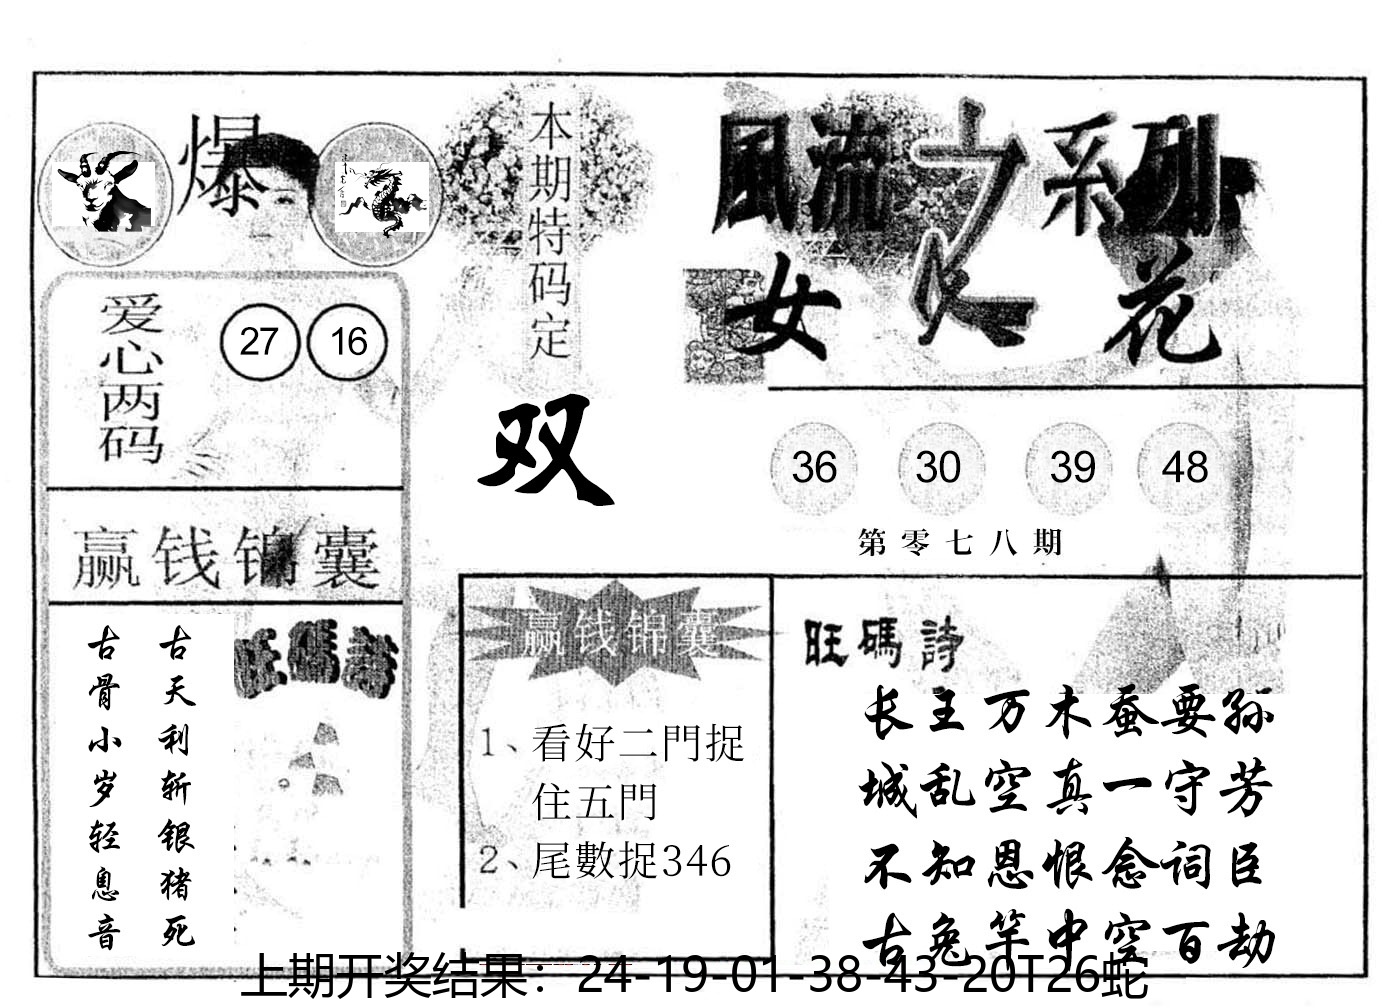 爆
本期特码定
双
風流之系列
女人花
爱心两码
27 16
36 30 39 48
第零七八期
赢钱锦囊
古天利斩银猪死
古骨小岁轻息音
旺碼詩
赢钱锦囊
1、看好二門捉
住五門
2、尾數捉346
旺碼詩
长王万木蚕要孙
城乱空真一守芳
不知恩恨念词臣
古兔竿中空百劫
上期开奖结果：24-19-01-38-43-20T26蛇